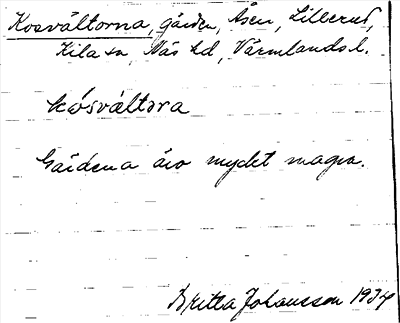 Kosvältorna, gärden, Åsen, Lillerud,
Kila sn, Näs hd, Värmlands l.
kósvältọra
Gärdena äro mycket magra.
Britta Johansson 1934